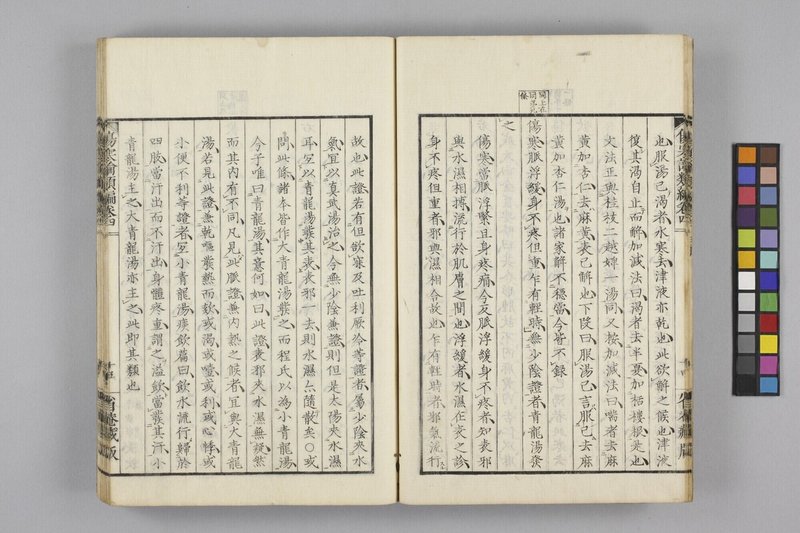 也服湯已渴者水寒去津液亦乾也此欲解之候也津液
復其渴自止而解加減法曰渴者去半夏加栝樓根是也
文法正與桂枝二越婢一湯同又按加減法曰喘者去麻
黃加杏仁去麻黃表已解也下段曰服湯已言服已去麻
黃加杏仁湯也諸家解不穩當今皆不錄
傷寒脈浮緩身不疼但重乍有輕時無少陰證者青龍湯發
之
傷寒當脈浮緊且身疼痛今反脈浮緩身不疼者表邪
與水濕相搏流行於肌膚之間也浮緩者水濕在表之診
身不疼但重者邪與濕相合故也乍有輕時者邪氣流行
故也此證若有但欲寐及吐利厥冷等證者屬少陰夾水
氣宜以真武湯治之今無少陰兼證則但是太陽夾水濕
耳宜以青龍湯發其表表邪一去則水濕亦隨散矣○或
問此條諸本皆作大青龍湯發之而程氏以為小青龍湯
今子唯曰青龍湯其意何如曰此證表邪夾水濕無疑然
而其內有不同凡見此脈證兼內熱之候者宜與大青龍
湯若見此證兼乾嘔發熱而欬或渴或噎或利或心悸或
小便不利等證者宜小青龍湯痰飲篇曰飲水流行歸於
四肢當汗出而不汗出身體疼重謂之溢飲當發其汗小
青龍湯主之大青龍湯亦主之此即其類也
傷寒論類編卷四